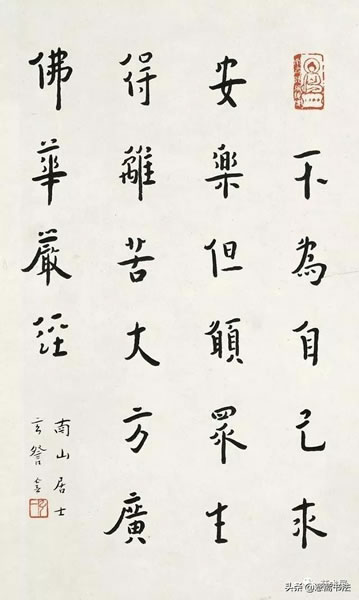 不為自己求
安樂但願眾生
得離苦大方廣
佛華嚴經
南山居士
头条@慈斋书法